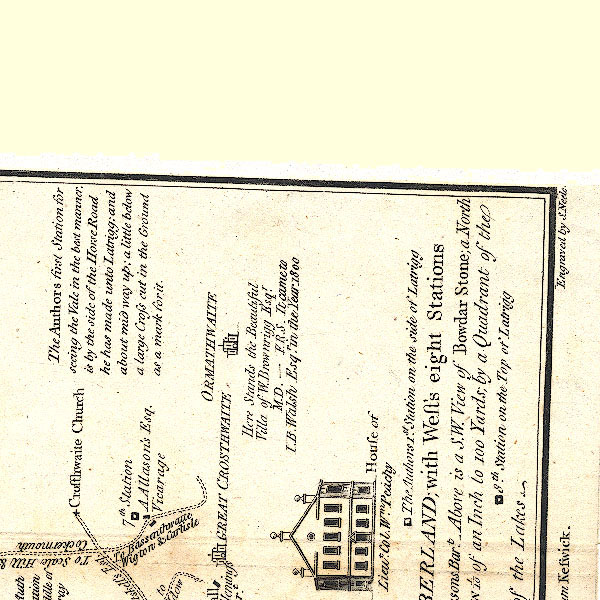 The Author's first Station for
seeing the Vale in the best manner,
is by the side of the Horse Road
he has made unto Latrigg; and
about mid way up; a little below
a large Croſs cut in the Ground
as a mark for it.
Croſthwaite Church
7th Station
A. Allason's Esq.
Vicarage
ORMATHWAITE
Here Stands the Beautiful
Villa of W. Brownrigg Esqr.
M.D. — F.R.S. It came to
I.B. Walsh Esqr. in the Year 1800
GREAT CROSTHWAITE
To Bassenthwaite
Wigton & Carlisle
Cockermouth
To Scale Hill &
Houſe of
Lieut. Col. Wm. Peachy
The Authors 1st Station on the side of Latrigg
BERLAND; with Weſts eight Stations
Above is a S.W. View of Bowdar Stone; a North
of an Inch to 100 Yards; by a Quadrant of the
8th Station on the Top of Latrigg
of the Lakes
Engraved by S. Neele.
Keſwick.